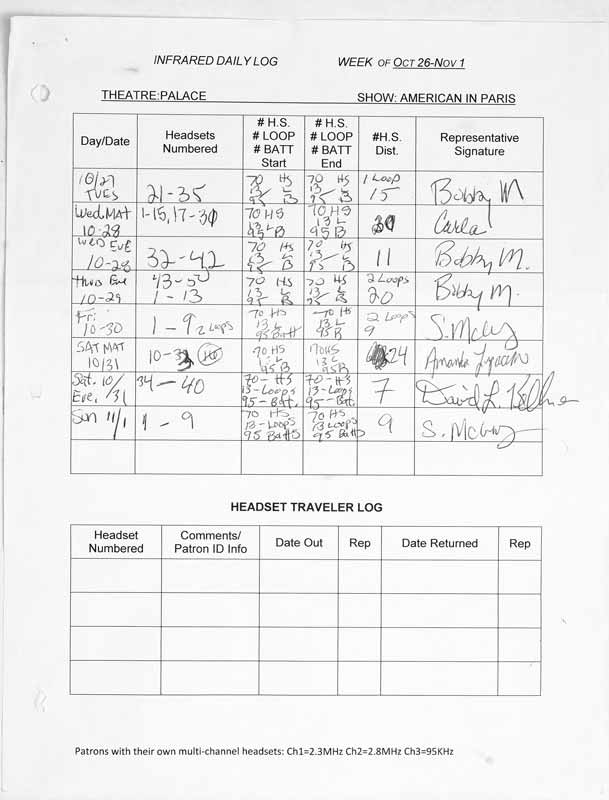 INFRARED DAILY LOG WEEK OF OCT 26-NOV 1
THEATRE:PALACE SHOW: AMERICAN IN PARIS
Day/Date Headsets Numbered # H.S. # LOOP # BATT Start # H.S. # LOOP # BATT End #H.S. Dist. Representative Signature
10/27 TUES 21-35 70 HS 13 L 95 B 70 HS 13 L 95 B 1 Loop 15 Bobby M
Wed. MAT 10-28 1-15, 17-31 70 HS 13 L 95 B 70 HS 13 L 95 B 30 Carla
WED EVE 10-28 32-42 70 HS 13 L 95 B 70 HS 13 L 95 B 11 Bobby M.
Thurs Eve 10-29 43-50 1-13 70 HS 13 L 95 B 70 HS 13 L 95 B 2 Loops 20 Bobby M.
Fri 10-30 1-9 2 Loops 70 HS 13 L 95 Batt 70 HS 13 L 95 B 2 Loops 9
SAT MAT 10/31 10-33 70 HS 13 L 95 B 70 HS 13 L 95 B 24 Amanda
Sat. 10/31 Eve, 34-40 70-HS 13-Loops 95-Batt. 70-HS 13-Loops 95-Batt. 7 David L.
Sun 11/1 1-9 70 HS 13-Loops 95 Batts 70 HS 13 Loops 95 Batts 9
HEADSET TRAVELER LOG
Headset Numbered Comments/ Patron ID Info Date Out Rep Date Returned Rep
Patrons with their own multi-channel headsets: Ch1=2.3MHz Ch2=2.8MHz Ch3=95KHz